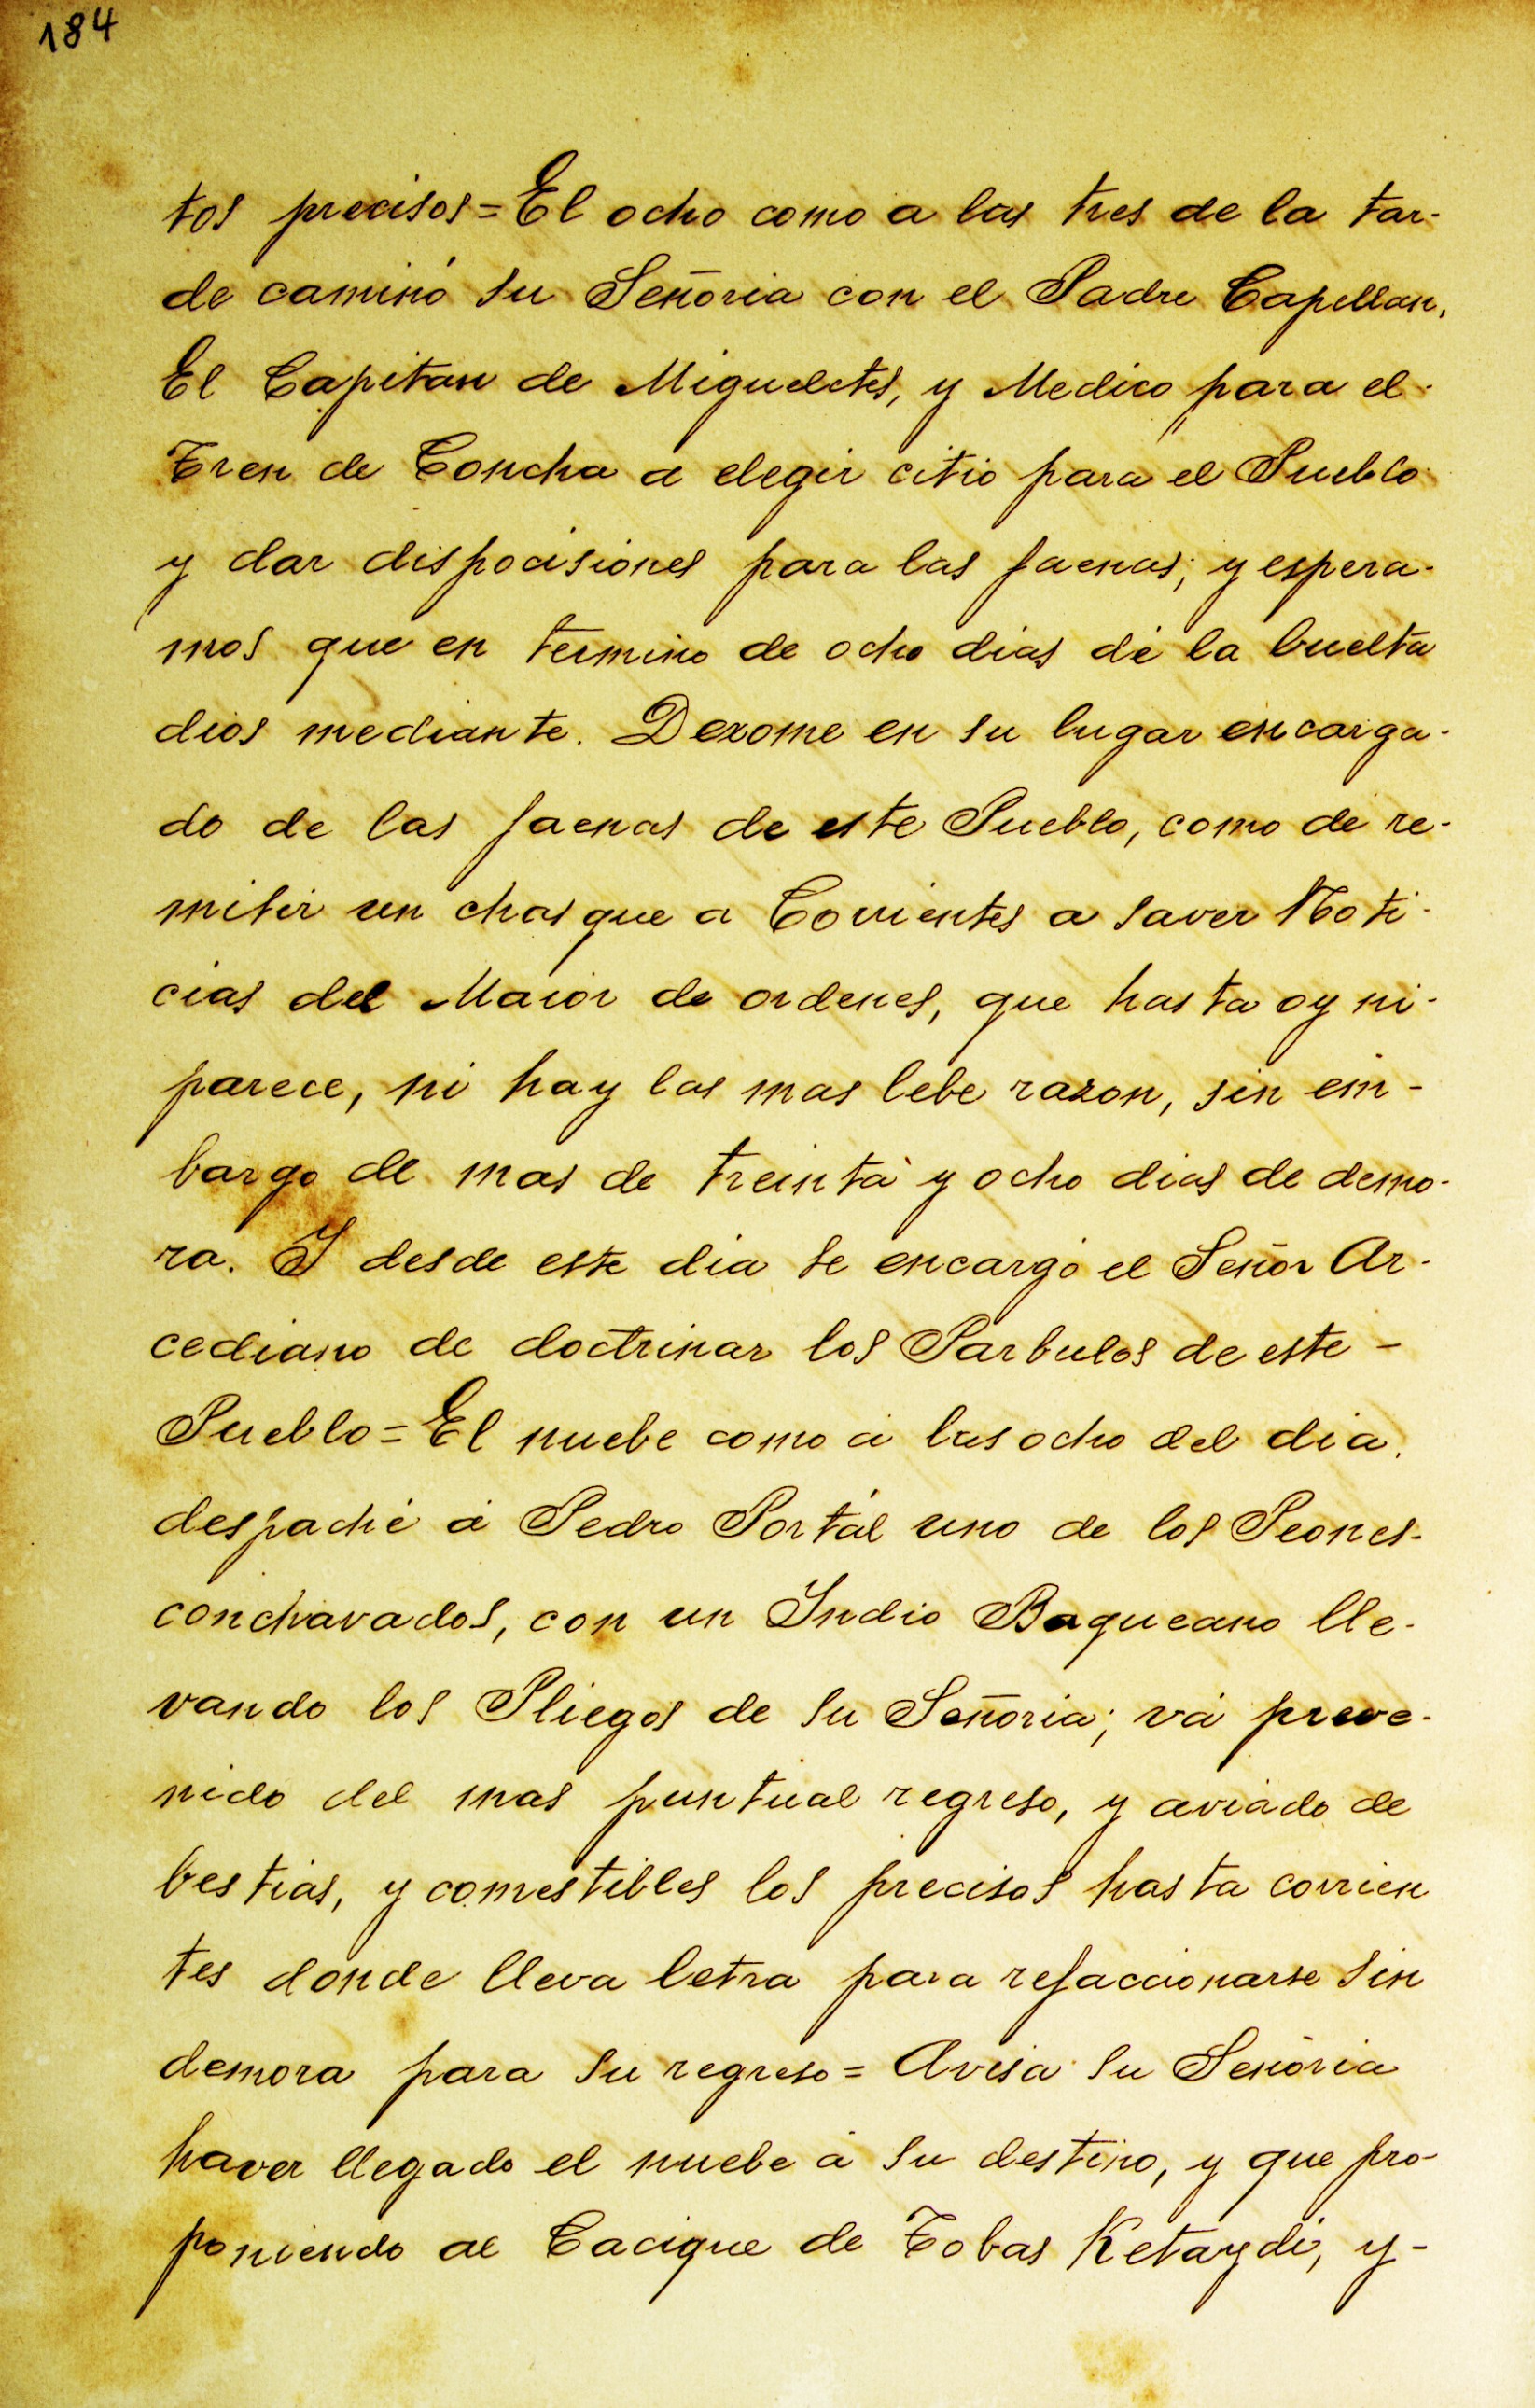 184
tos precisos=El ocho como a las tres de la tar-
de caminó su Señoria con el Padre Capellan,
El Capitan de Migueletes, y Medico para el-
Tren de Concha a elegir citio para el Pueblo
y dar dispocisiones para las faenas; y espera-
mos que en termino de ocho dias dé la buelta
dios mediante. Dexome en su lugar encarga-
do de las faenas de este Pueblo, como de re-
mitir un chasque a Corrientes a saver Noti-
cias del Maior de ordenes, que hasta oy ni-
parece, ni hay las mas lebe razon, sin em-
bargo de mas de treinta y ocho dias de demo-
ra. Y desde este dia se encargó el Señor Ar-
cediano de doctrinar los Parbulos de este -
Pueblo=El nuebe como á las ocho del dia.
despaché á Pedro Portál uno de los Peones-
conchavados, con un Indio Baqueano lle-
vando los Pliegos de su Señoria; vá preve-
nido del mas puntual regreso, y aviado de
bestias, y comestibles los precisos hasta corrien
tes donde lleva letra para refaccionarse sin
demora para su regreso= Avisa su Señoria
haver llegado el nuebe á su destino, y que pro-
poniendo al Cacique de Tobas Ketaydi, y-